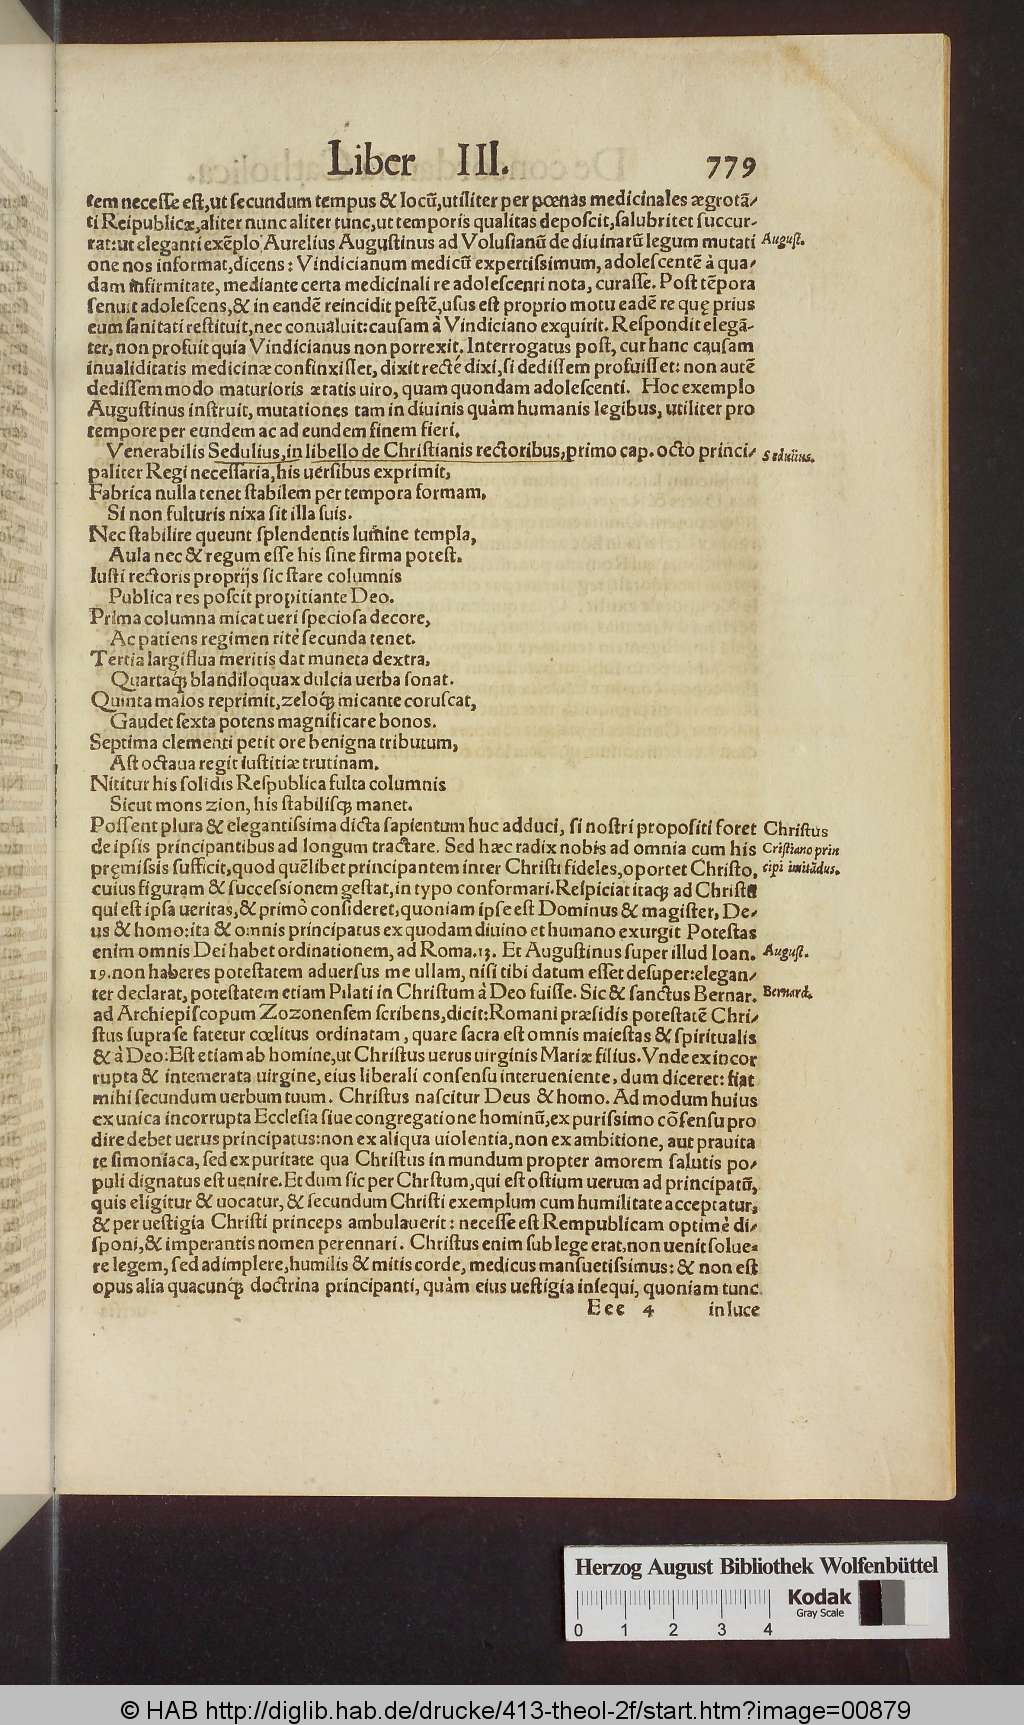 Liber III. 779
tem necesse est, ut secundum tempus & locū, utiliter per pœnas medicinales ægrotā/
ti Reipublicæ, aliter nunc aliter tunc, ut temporis qualitas deposcit, salubritet succur-
rat: ut eleganti exēplo Aurelius Augustinus ad Volusianū de diuinarū legum mutati
August.
one nos informat, dicens: Vindicianum medicū expertissimum, adolescentē à qua/
dam infirmitate, mediante certa medicinali re adolescenti nota, curasse. Post tēpora
senuit adolescens, & in eandē reincidit pestē, usus est proprio motu eadē re quę prius
eum sanitati restituit, nec conualuit: causam à Vindiciano exquirit. Respondit elegā-
ter, non profuit quia Vindicianus non porrexit. Interrogatus post, cur hanc causam
inualiditatis medicinæ confinxisset, dixit recté dixi, si dedissem profuisset: non autē
dedissem modo maturioris ætatis uiro, quam quondam adolescenti. Hoc exemplo
Augustinus instruit, mutationes tam in diuinis quàm humanis legibus, utiliter pro
tempore per eundem ac ad eundem finem fieri.
Venerabilis Sedulius, in libello de Christianis rectoribus, primo cap. octo princi/
Sedulius.
paliter Regi necessaria, his uersibus exprimit,
Fabrica nulla tenet stabilem per tempora formam,
Si non fulturis nixa sit illa suis.
Nec stabilire queunt splendentis lumine templa,
Aula nec & regum esse his sine firma potest.
Iusti rectoris proprijs sic stare columnis
Publica res poscit propitiante Deo.
Prima columna micat ueri speciosa decore,
Ac patiens regimen ritè secunda tenet.
Tertia largiflua meritis dat munera dextra,
Quartaq; blandiloquax dulcia uerba sonat.
Quinta malos reprimit, zeloq; micante coruscat,
Gaudet sexta potens magnificare bonos.
Septima clementi petit ore benigna tributum,
Ast octaua regit iustitiæ trutinam.
Nititur his solidis Respublica fulta columnis
Sicut mons zion, his stabilisq; manet.
Possent plura & elegantissima dicta sapientum huc adduci, si nostri propositi foret
Christus
de ipsis principantibus ad longum tractare. Sed hæc radix nobis ad omnia cum his
Cristiano prin
pręmissis sufficit, quod quēlibet principantem inter Christi fideles, oportet Christo,
cipi imitādus.
cuius figuram & successionem gestat, in typo conformari. Respiciat itaq; ad Christū
qui est ipsa ueritas, & primò consideret, quoniam ipse est Dominus & magister, De/
us & homo: ita & omnis principatus ex quodam diuino et humano exurgit Potestas
enim omnis Dei habet ordinationem, ad Roma. 13. Et Augustinus super illud Ioan.
August.
19. non haberes potestatem aduersus me ullam, nisi tibi datum esset desuper: elegan/
ter declarat, potestatem etiam Pilati in Christum à Deo fuisse. Sic & sanctus Bernar.
Bernard.
ad Archiepiscopum Zozonensem scribens, dicit: Romani præsidis potestatē Chri/
stus supra se fatetur cœlitus ordinatam, quare sacra est omnis maiestas & spiritualis
& à Deo: Est etiam ab homine, ut Christus uerus uirginis Mariæ filius. Vnde ex incor
rupta & intemerata uirgine, eius liberali consensu interueniente, dum diceret: fiat
mihi secundum uerbum tuum. Christus nascitur Deus & homo. Ad modum huius
ex unica incorrupta Ecclesia siue congregatione hominū, ex purissimo cōsensu pro
dire debet uerus principatus: non ex aliqua uiolentia, non ex ambitione, aut prauita
te simoniaca, sed ex puritate qua Christus in mundum propter amorem salutis po/
puli dignatus est uenire. Et dum sic per Chrstum, qui est ostium uerum ad principatū,
quis eligitur & uocatur, & secundum Christi exemplum cum humilitate acceptatur,
& per uestigia Christi princeps ambulauerit: necesse est Rempublicam optimè di/
sponi, & imperantis nomen perennari. Christus enim sub lege erat, non uenit solue=
re legem, sed adimplere, humilis & mitis corde, medicus mansuetissimus: & non est
opus alia quacunq; doctrina principanti, quàm eius uestigia insequi, quoniam tunc
Eee 4 in luce
Herzog August Bibliothek Wolfenbüttel
Kodak
Gray Scale
0 1 2 3 4
© HAB http://diglib.hab.de/drucke/413-theol-2f/start.htm?image=00879